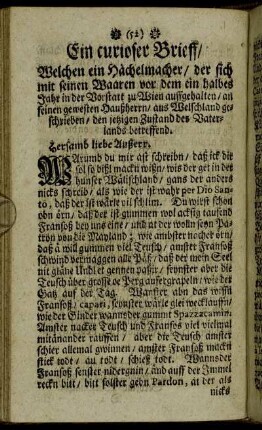 (52)
Ein curioser Brieff/
Welchen ein Hächelmacher/ der sich
mit seinen Waaren vor dem ein halbes
Jahr in der Vorstatt zu Wien auffgehalten/ an
seinen gewesten Haußherrn/ aus Welschland ge-
schrieben/ den jetzigen Zustand des Vater-
lands betreffend.
liebe
WArumb du mir ast schreibn/ daß ick dir
sol so bißl mackn wißn/ wie der zet in der
unser Wälischland/ gans der anders
nicks schreib/ als wie der ist wahr per Dio San-
to, daß der ist wärle vil schlim. Du wirst schon
obn örn/ daß der ist gummen wol acksig tausend
Franßoß ben uns eine/ und at der wolln sein Pa-
tron von die Mayland/ wie ambster nacher örn/
daß a will gummen viel Teusch/ amster Franßoß
schwind vermaggen alle Päß/ daß bei mein Seel
nit gläne Undl et gennen paßir/ seynster aber die
Teusch aber große Perg aufergrapeln/ wie der
Gatz auf der Tag. Wannster abn das wißn
Franßoß/ capari, seynster wärle glei weckläuffn/
wie der Ginder wanns der gummt Spazzacamin.
Amster nacker Teusch und Franßos viel vielmal
mitånander rauffen/ aber die Teusch amster
schier allemal gwinnen/ amster Franßaß mackn
stick todt/ au todt/ schieß todt. Wannsder
Franßoß fenster nidergnin/ und auff der Immel
reckn bitt/ bitt solster gebn Pardon, at der als
nicks